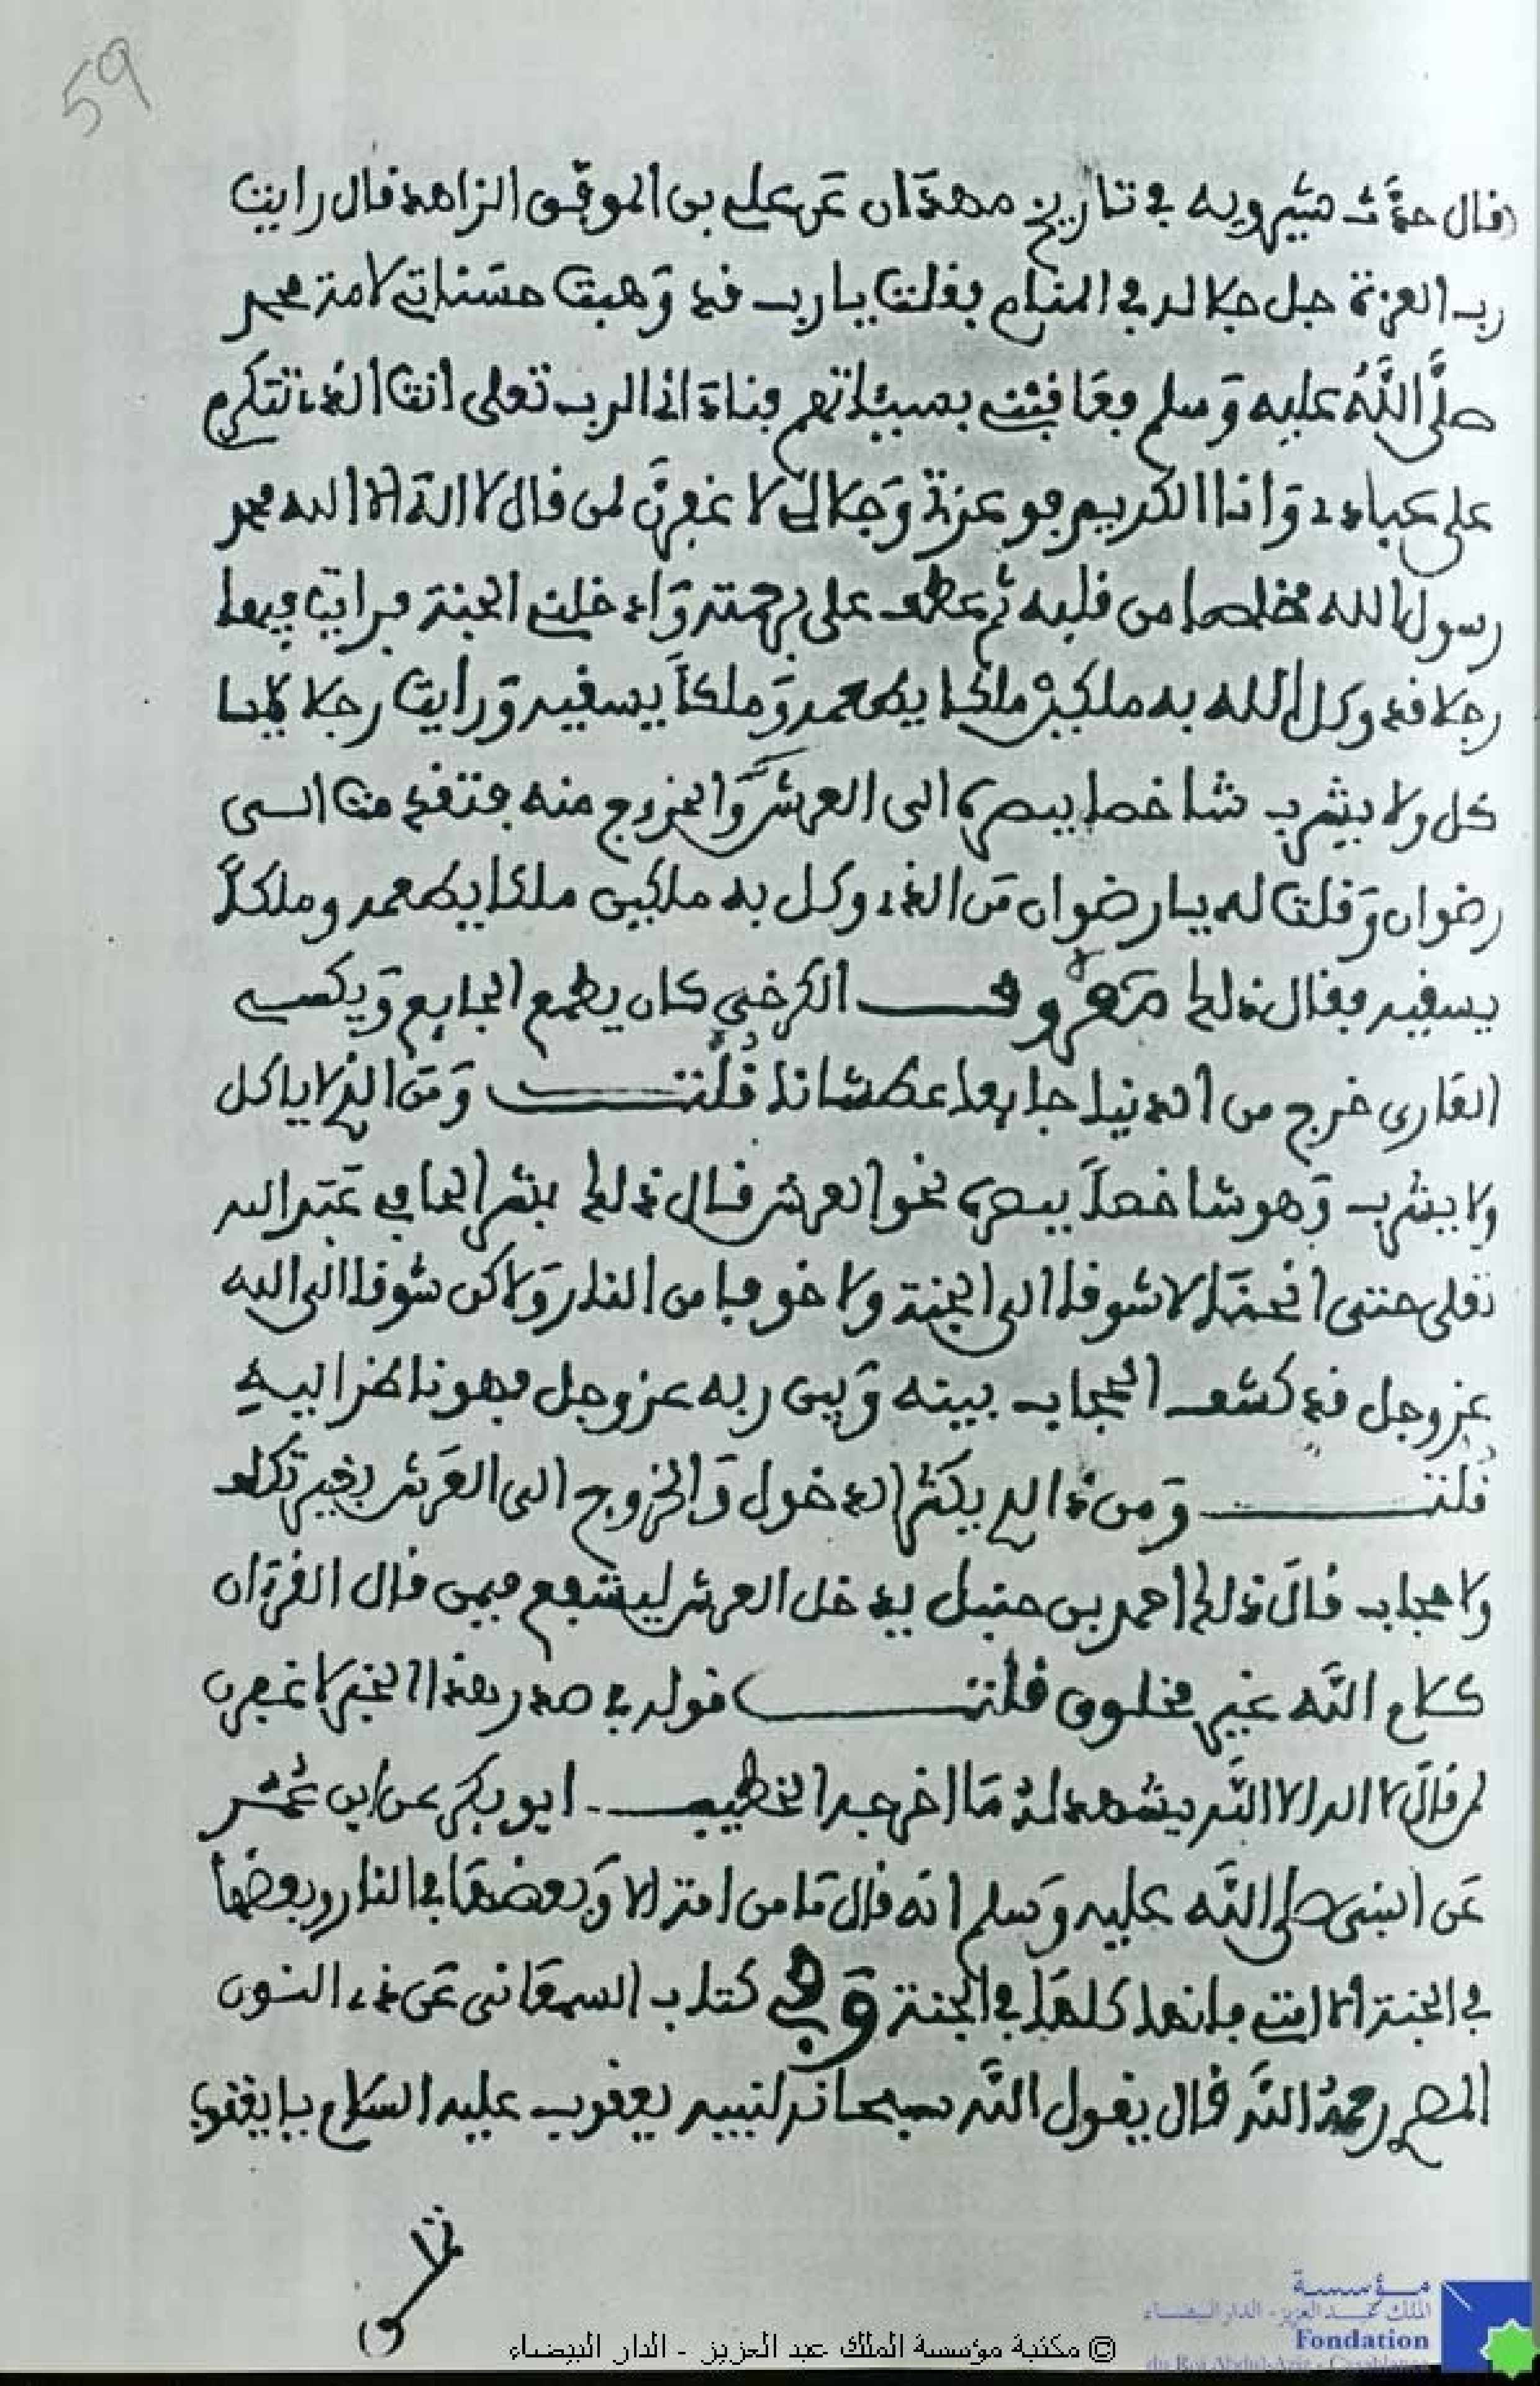 59
قال حدث شيرويه في تاريخ همذان عن علي بن الموفق الزاهد قال رايت
رب العزة جل جلاله في المنام فقلت يا رب قد وهبت حسناتي لامة محمد
صلى الله عليه وسلم فعاقبني بسيئاتهم فناداني الرب تعلى انت الذي تتكرم
على عبادي وانا الكريم فو عزتي وجلالي لا غفرن لمن قال لا اله الا الله محمد
رسول الله مخلصا من قلبه ثم عطف على برحمته وادخلني الجنة فرايت فيها
رجلا قد وكل الله به ملكين ملكا يطعمه وملكا يسقيه ورايت رجلا
كل ولا يشرب شاخصا ببصره الى العرش والخروج منه فتقدمت الى
رضوان وقلت له يا رضوان من الذي وكل به ملكين ملكا يطعمه وملكا
يسقيه فقال ذلك معروف الكرخي كان يطعم الجايع ويكسي
العاري خرج من الدنيا جايعا عطشانا قلت ومن الذي لا ياكل
ولا يشرب وهو شاخصا ببصره نحو العرش قال ذلك بشر الحافي عبد الله
تعلى حتى لا شوقا الى الجنة ولا خوفا من النار ولاكن شوقا الى الله
عز وجل قد كشف الحجاب بينه وبين ربه عز وجل فهو ناظر اليه
قلت ومن ذا الذي يكثر الدخول والخروج الى العرش بغير تكلف
ولا حجاب قال ذلك احمد بن حنبل يدخل العرش ليشفع فيمن قال القرءان
كلام الله غير مخلوق قلت قوله في صدر هذا الخبر لا غفرن
لمن قال لا اله الا الله يشهد له ما اخرجه الخطيب ابو بكر عن ابن عمر
عن النبي صلى الله عليه وسلم انه قال ما من امة الا وبعضها في النار وبعضها
في الجنة الا امتي فانها كلها في الجنة وفي كتاب السمعاني عن ذي النون
المصري رحمه الله قال يقول الله سبحانه لنبيه يعقوب عليه السلام يا يعقوب
© مكتبة مؤسسة الملك عبد العزيز - الدار البيضاء
مؤسسة
الملك عبد العزيز - الدار البيضاء
Fondation
du Roi Abdul-Aziz - Casablanca